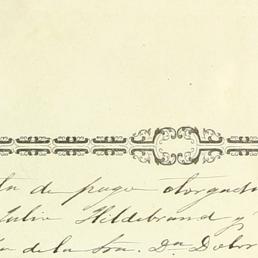 ta de pago otorgada
Julio Hildebrand y
ta de la Sra. Da. Dolor